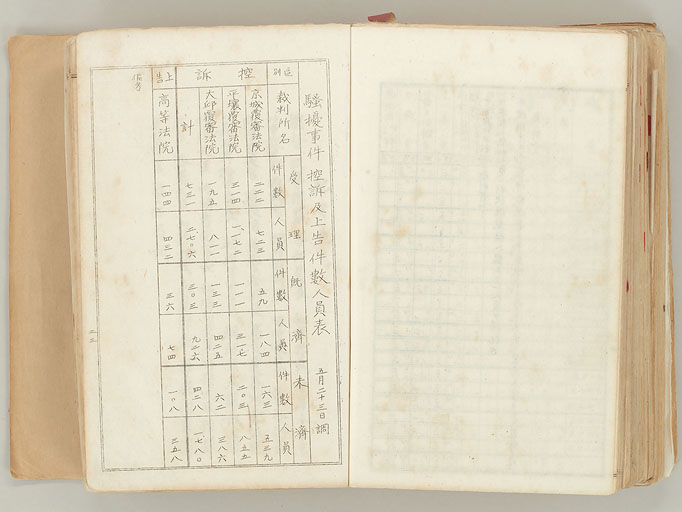 騷擾事件控訴及上告件數人員表 五月二十三日調
區別 裁判所名 受理 既濟 未濟
件數 人員 件數 人員 件數 人員
控訴
京城覆審法院 二二二 七二三 五九 一八四 一六三 五三九
平壤覆審法院 三一四 一、一七二 一一一 三一七 二〇三 八五五
大邱覆審法院 一九五 八一一 一三三 四二五 六二 三八六
計 七三一 二、七〇六 三〇三 九二六 四二八 一七八〇
上告 高等法院 一四四 四三二 三六 七四 一〇八 三五八
備考